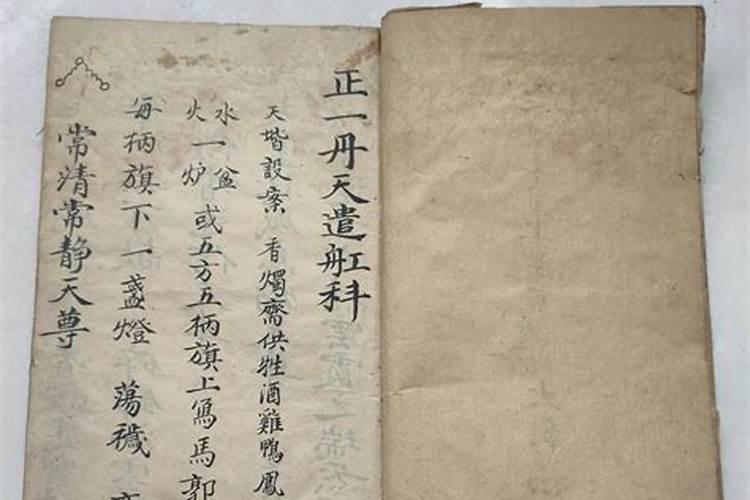 正一丹天遣舡科
天堦設案 香燭齋供牲酒雞鴨鳳
水一盆 火一炉 或五方五柄旗上寫馬郭
每柄旗下一盞燈 蕩穢
常清常静天尊